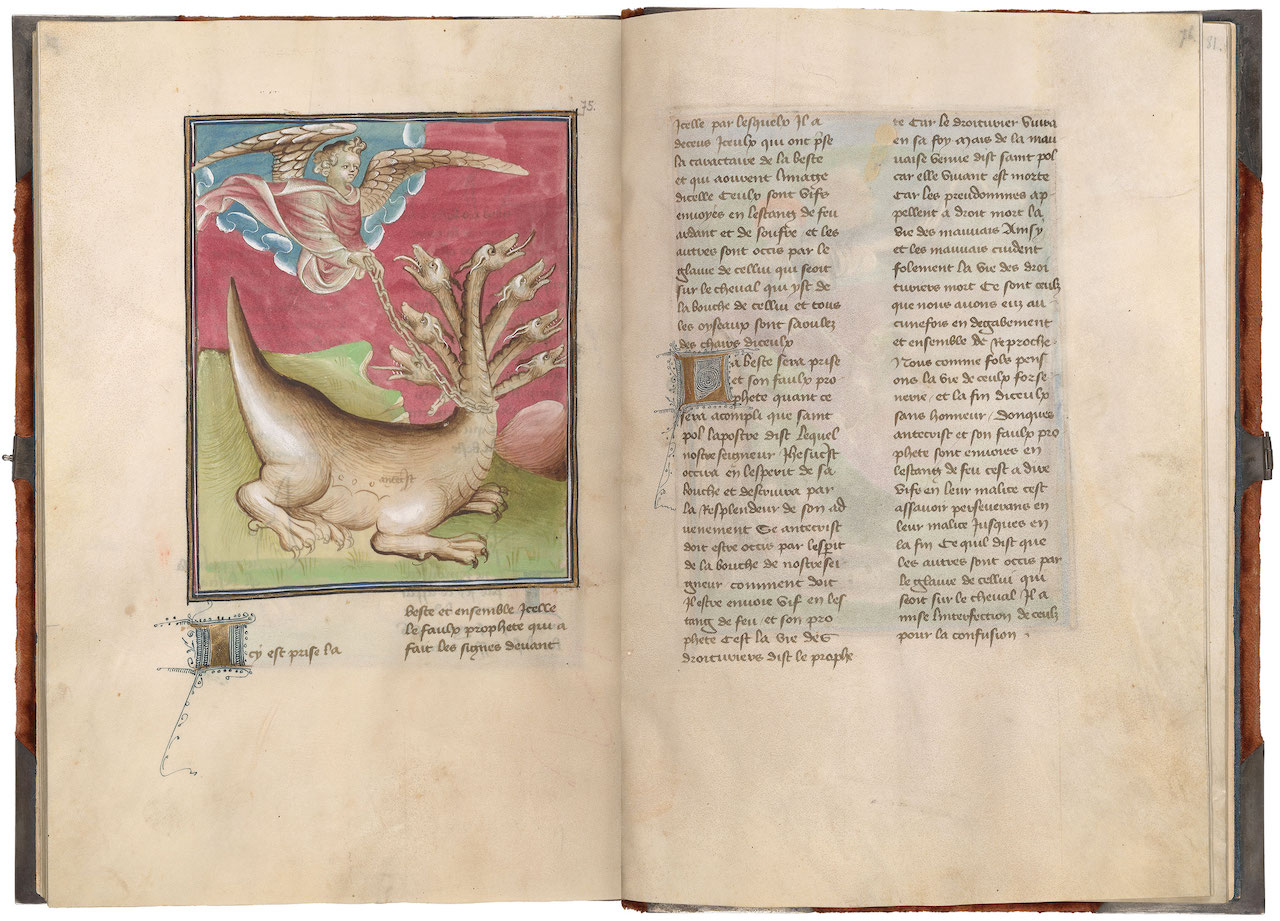 75.
antecrist
Icy est prise la
beste et ensemble Icelle
le faulx prophete qui a
fait les signes devant
76
81.
Icelle par lesquelx Il a
deceus Iceulx qui ont pse
la caractaire de la beste
et qui aouvent limage
dicelle Ceulx sont vifs
envoyes en lestang de feu
ardant et de souffre et les
autres sont occis par le
glaive de cellui qui seoit
sur le cheval qui yst de
la bouche de cellui et tous
les oyseaux sont saoulez
des chairs diceulx
La beste sera prise
et son faulx pro-
phete quant ce
sera acompli que saint
pol lapostre dist Lequel
nostre seigneur Jhesucrist
occira en lesperit de sa
bouche et destruira par
la Resplendeur de son ad
venement Se antecrist
doit estre occis par lesperit
de la bouche de nostre sei
gneur comment doit
Il estre envoie vif en les
tang de feu et son pro
phete Cest la vie des
droituriers dist le prophe
te Car le droiturier vivra
en sa foy Mais de la mau
vaise venue dist saint pol
car elle vivant est morte
Car les preudommes ap
pellent a droit mort la
vie des mauvais Ainsy
et les mauvais cuident
folement la vie des droi
turiers mort Ce sont ceulx
que nous avons euz au-
cunefois en degabement
et ensemble de Reproche
Nous comme fols pens
ons la vie de ceulx forse
nerie / et la fin diceulx
sans honneur / Donques
antecrist et son faulx pro
phete sont envoies en
lestang de feu cest a dire
vifs en leur malice cest
assavoir perseverans en
leur malice Jusques en
la fin Ce quil dist que
les autres sont occis par
le glaive de cellui qui
seoit sur le cheval / Il a
mise linterfection de ceulx
pour la confusion